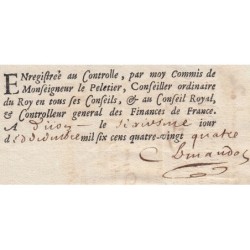 ENregistreé au Controlle, par moy Commis de
Monseigneur le Peletier, Conseiller ordinaire
du Roy en tous ses Conseils, & au Conseil Royal,
& Controlleur general des Finances de France.
A le iour
mil six cens quatre-vingt quatre